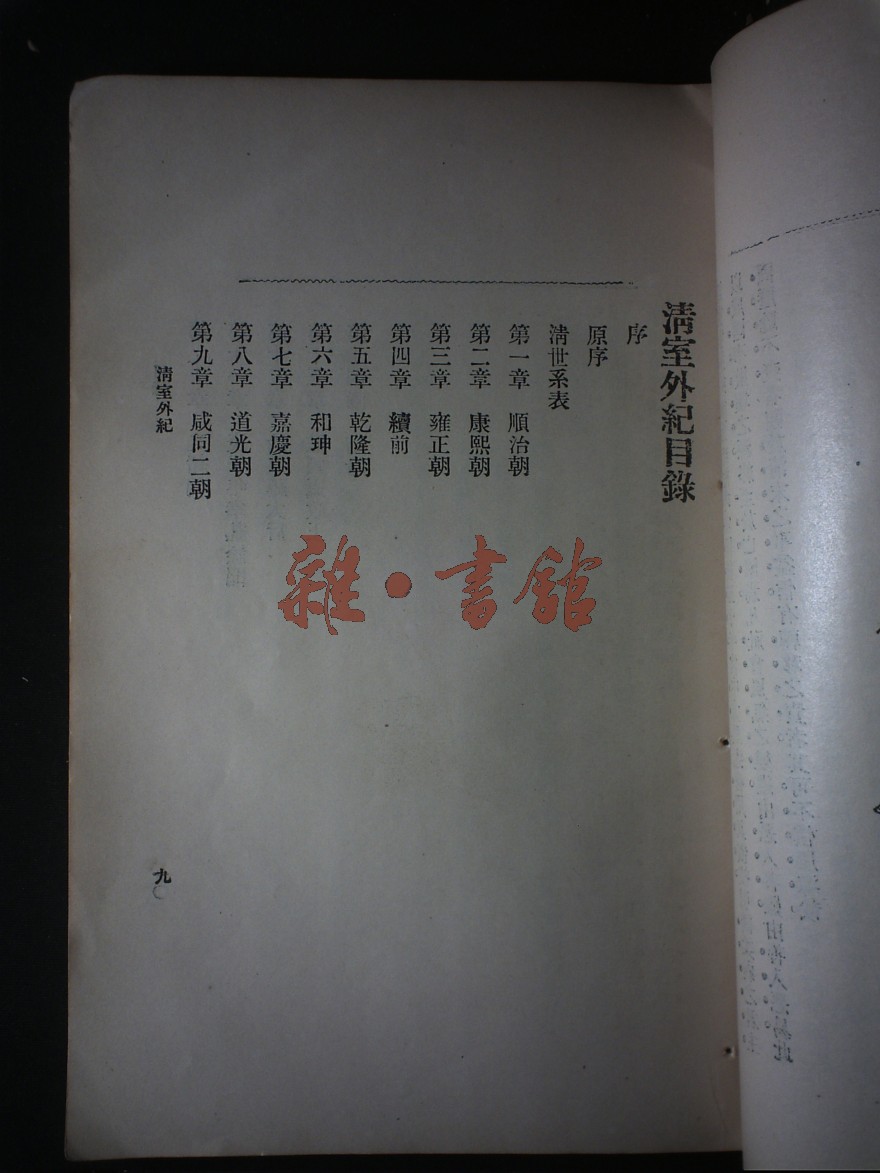 淸室外紀目錄
序
原序
淸世系表
第一章 順治朝
第二章 康熙朝
第三章 雍正朝
第四章 續前
第五章 乾隆朝
第六章 和珅
第七章 嘉慶朝
第八章 道光朝
第九章 咸同二朝
淸室外紀
九
雜·書館